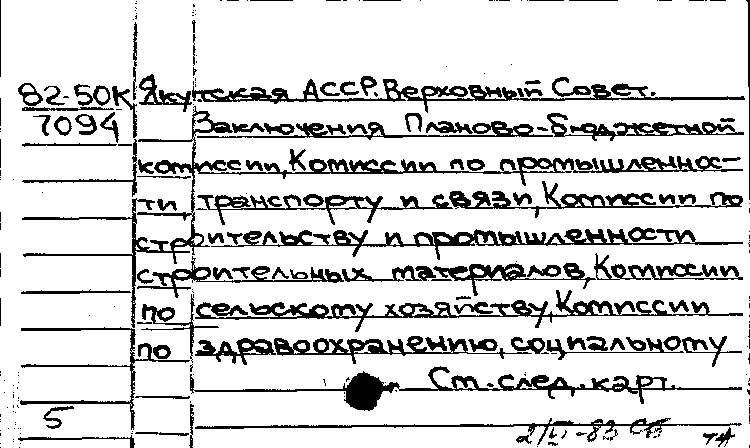 82-50К Якутская АССР. Верховный Совет.
7094 Заключения Планово-бюджетной
комиссии, Комиссии по промышленнос-
ти, транспорту и связи, Комиссии по
строительству и промышленности
строительных материалов, Комиссии
по сельскому хозяйству, Комиссии
по здравоохранению, социальному
См. след. карт.
5